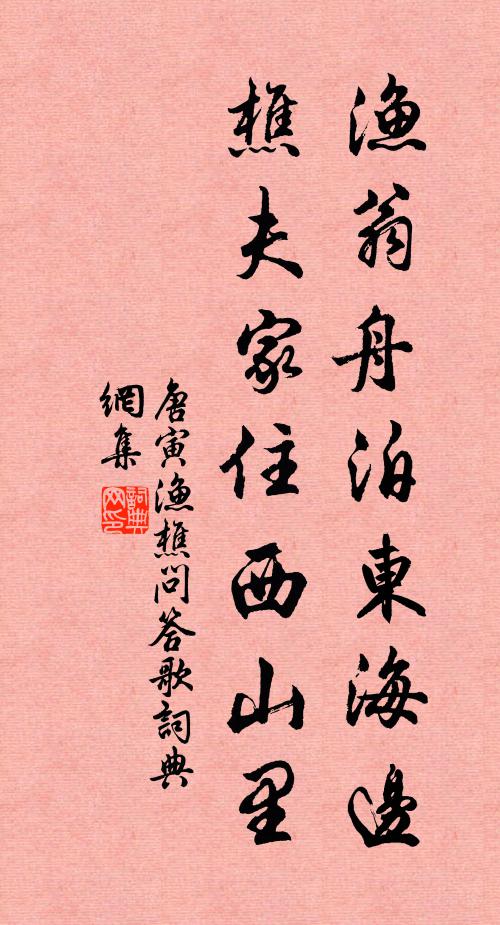 漁翁舟泊東海邊
樵夫家住西山里
唐寅漁樵問答歌詞典
網集
詞典
网印